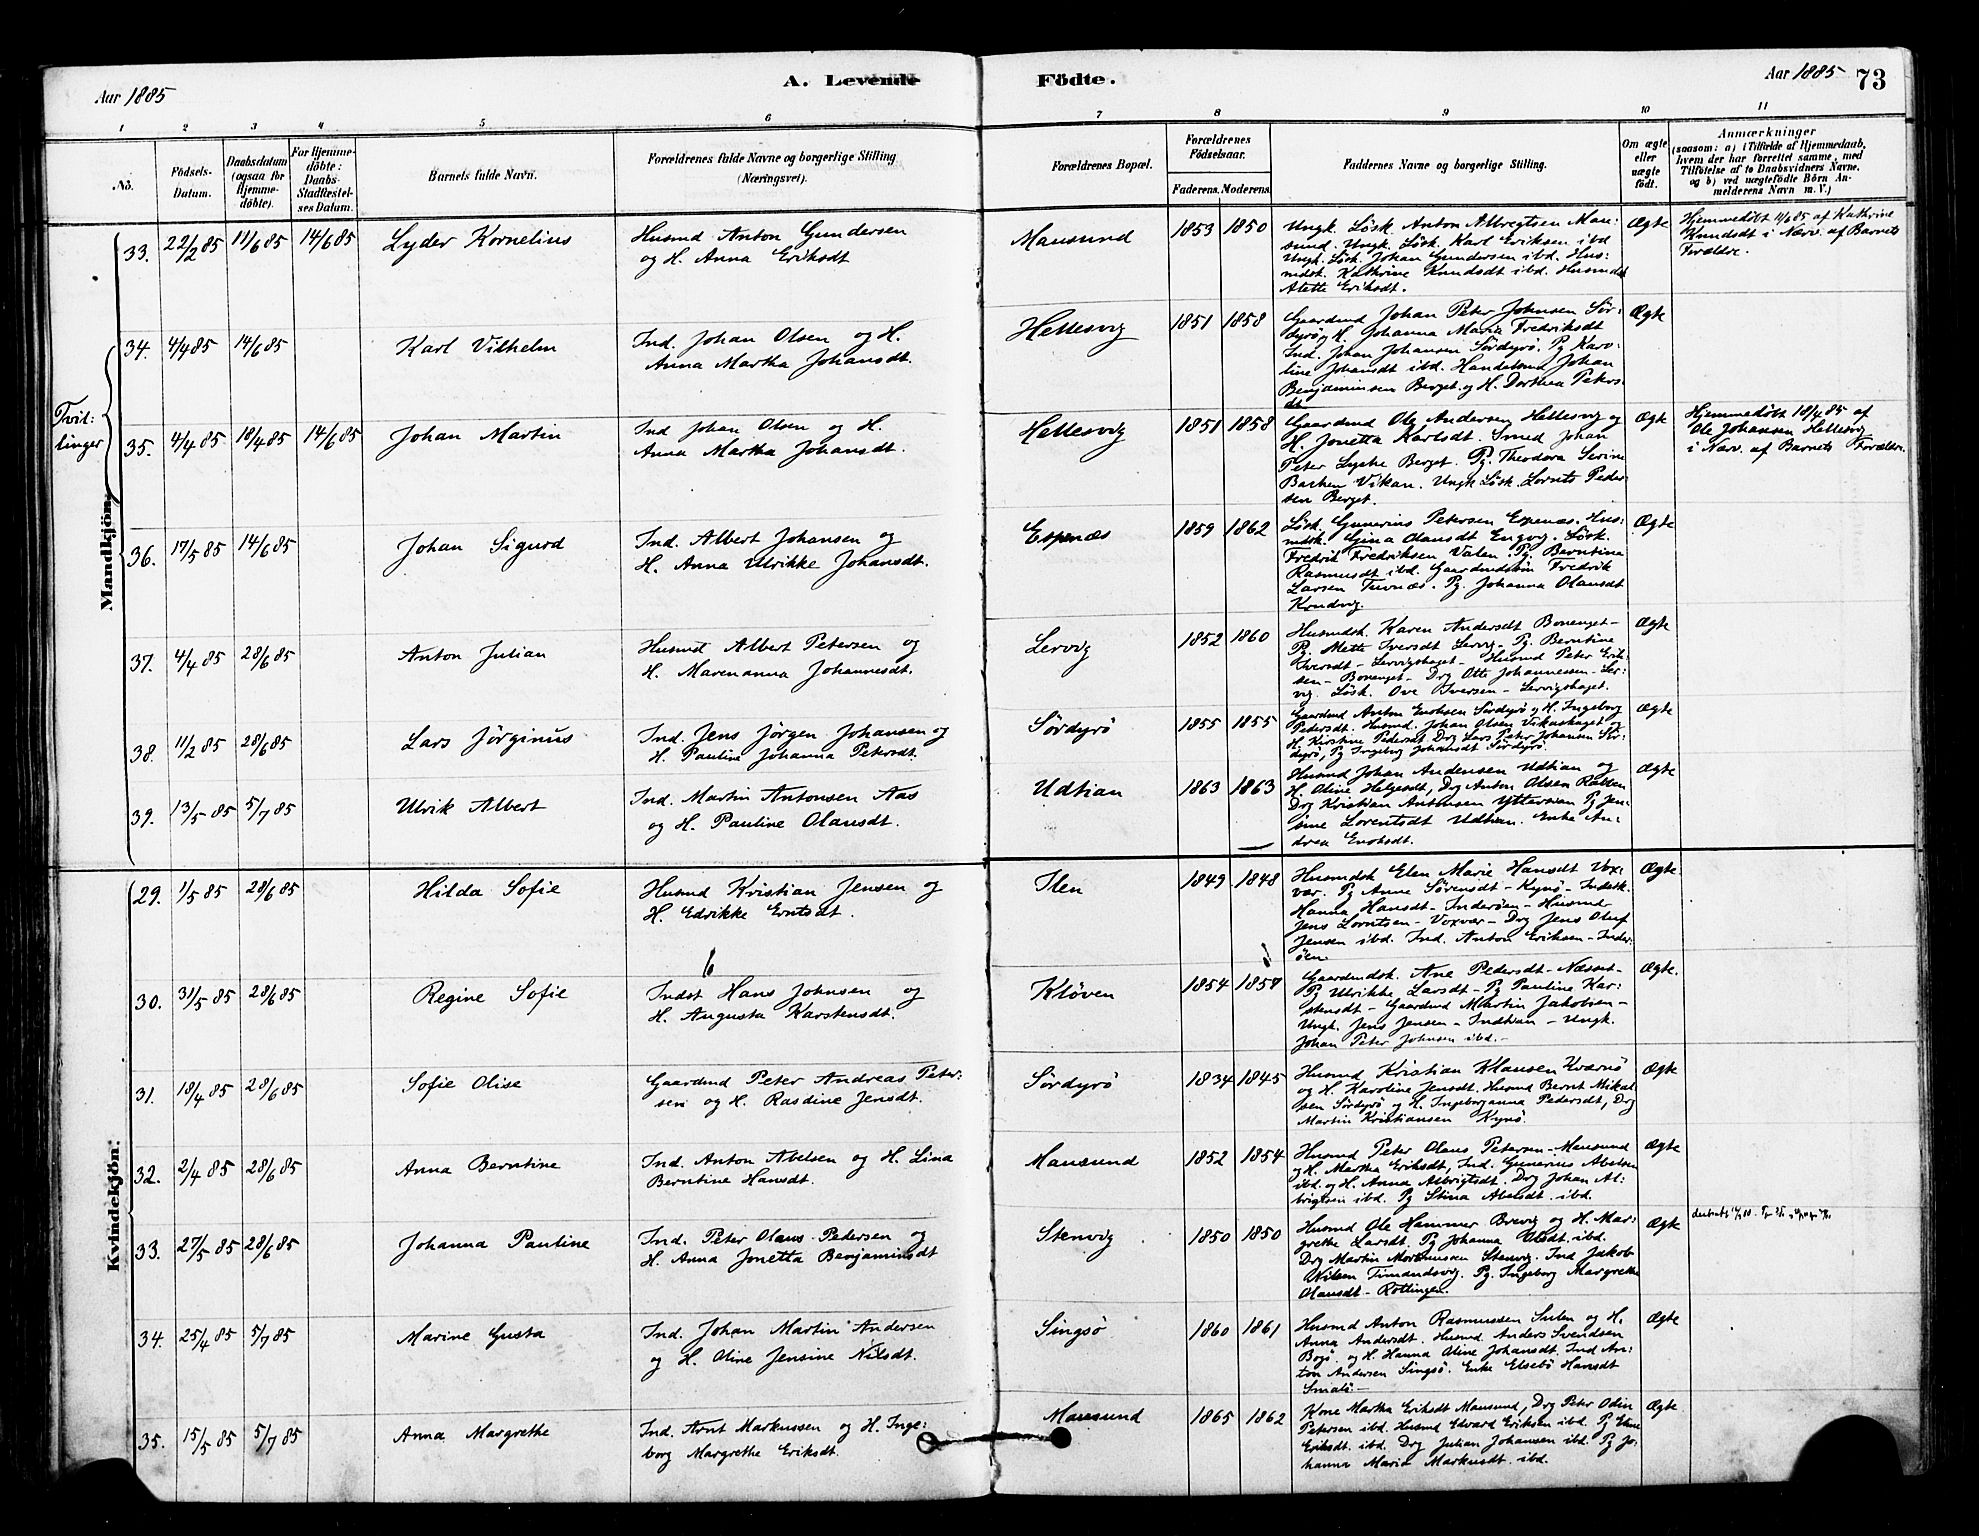 Aar 1885
A. Levende
Födte.
Aar 1885
73
1 2 3 4 5 6 7 8 9 10 11
No.
Födsels-Datum.
Daabsdatum (ogsaa for Hjemme-döbte).
For Hjemme-döbte: Daabs-Stadfæstel-ses Datum.
Barnets fulde Navn.
Forældrenes fulde Navne og borgerlige Stilling
(Næringsvei).
Forældrenes Bopæl.
Forældrenes Födselsaar.
Faderens. Moderens.
Faddernes Navne og borgerlige Stilling.
Om ægte eller uægte födt.
Anmærkninger
(saasom: a) i Tilfælde af Hjemmedaab,
hvem der har forrettet samme, med
Tilföielse af to Daabsvidners Navne,
og b) ved uægtefödte Börn An-
melderens Navn m. V.)
Mandkjön:
Tvil:
linger
33. 22/2 85 11/6 85 14/6 85 Lyder Kornelius
Husmd Anton Gundersen
og H. Anna Eriksdt
Mausund 1853 1850
Ungk. Lösk Anton Albregtsen Mau:
sund. Ungk. Lösk. Karl Eriksen ibd
Ungk. Lösk. Johan Gundersen ibd. Hus:
mdsk. Kathrine Knudsdt ibd. Husmdsk
Alette Eriksdt.
Ægte
Hjemmedöbt 11/6 85 af Kathrine
Knudsdt i Nærv. af Barnets
Forældre.
34. 4/4 85 14/6 85 Karl Vilhelm
Ind. Johan Olsen og H.
Anna Martha Johansdt.
Hellesvig 1851 1858
Gaardmd Johan Peter Johnsen Sör:
dyrö og H. Johanna Maria Fredriksdt
Ind. Johan Johansen Sördyrö. Pg Karo:
line Johansdt ibd. Handelsmd Johan
Benjaminsen Berget og H. Dorthea Peters:
dt
Ægte
35. 4/4 85 18/4 85 14/6 85 Johan Martin
Ind Johan Olsen og H.
Anna Martha Johansdt.
Hellesvig 1851 1858
Gaardmd Ole Andersen Hellesvig og
H. Jonetta Karlsdt. Smed Johan
Peter Lyshe Berget. Pg. Theodora Serine
Bachen Vikan. Ungk Lösk. Lornts Peder:
sen Berget.
Ægte
Hjemmedöbt 18/4 85 af
Ole Johansen Hellesvig
i Nærv. af Barnets Forældre.
36. 17/5 85 14/6 85 Johan Sigurd
Ind. Albert Johansen og
H. Anna Ulrikke Johansdt.
Espnæs 1859 1862
Lösk. Gunerius Petersen Espnæs. Hus:
mdsk. Gina Olausdt Engvig. Lösk.
Fredrik Fredriksen Valen. Pg. Berntina
Rasmusdt ibd. Gaardmdskin Fredrik
Larsen Tuvnæs. Pg. Johanna Olausdt
Kondvig.
Ægte
37. 4/4 85 28/6 85 Anton Julian
Husmd Albert Petersen og
H. Marenanna Johannesdt.
Lervig 1852 1860
Husmdsk. Karen Andersdt Bonenget –
Pg. Mette Iversdt Lervig – Pg. Berntine
Iversdt – Lervigshaget – Husmd Peter Erik:
sen – Bonenget – Drg Otte Johannessen – Ler:
vig. Lösk. Ove Iversen – Lervigshaget.
Ægte
38. 11/2 85 28/6 85 Lars Jörginus
Ind. Jens Jörgen Johansen og
H. Pauline Johanna Petersdt.
Sördyrö 1855 1855
Gaardmd Anton Enoksen Sördyrö og H. Ingeborg
Pedersdt. Husmd. Johan Olsen Vikashaget og
H. Kirstine Pedersdt Drg Lars Peter Johansen Sör:
dyrö, Pg Ingeborg Johansdt Sördyrö.
Ægte
39. 13/5 85 5/7 85 Ulrik Albert
Ind. Martin Antonsen Aas
og H. Pauline Olausdt.
Udtian 1863 1863
Husmd Johan Andersen Udtian og
H. Oline Helgesdt, Drg Anton Olsen Ratten
Drg Kristian Antonsen Yttersian Pg Jen:
sine Lorentsdt Udtian. Enke An:
drea Enoksdt.
Ægte
Kvindekjön:
29. 1/5 85 28/6 85 Hilda Sofie
Husmd Kristian Jensen og
H. Edrikke Erntsdt.
Ilen 1849 1848
Husmdsk Elen Marie Hansdt Vox:
vær. Pg Anne Sörensdt – Kynö – Indstk.
Hanna Hansdt – Inderöen – Husmd
Jens Lorntsen – Voxvær – Drg Jens Oluf
Jensen ibd. Ind. Anton Eriksen – Inder:
öen
Ægte
30. 31/5 85 28/6 85 Regine Sofie
Indst Hans Johnsen og
H. Augusta Karstensdt.
Klöven 1854 1857
Gaardmdsk. Ane Pedersdt – Næsset –
Pg Ulrikke Larsdt – Pg Pauline Kar:
stensdt – Gaardmd Martin Jakobsen –
Ungk. Jens Jensen – Indtian – Ungk.
Johan Peter Johnsen ibd. –
Ægte.
31. 18/4 85 28/6 85 Sofie Olise
Gaardmd Peter Andreas Peter:
sen og H. Rasdine Jensdt.
Sördyrö 1834 1845
Husmd Kristian Klausen Kværnö
og H. Karoline Jensdt. Husmd Bernt Mikal
sen Sördyrö og H. Ingeborganna Pedersdt, Drg
Martin Kristiansen Kynö.
Ægte
32. 2/4 85 28/6 85 Anna Berntine
Ind. Anton Abelsen og H. Lina
Berntine Hansdt.
Mausund 1852 1854
Husmd Peter Olaus Petersen – Mausund
og H. Martha Eriksdt, Ind. Gunerius Abelsen
ibd. og H. Anna Albrigtsdt. Drg Johan Al:
brigtsen ibd. Pg Stina Abelsdt. ibd.
Ægte
33. 27/5 85 28/6 85 Johanna Pauline
Ind. Peter Olaus Petersen og
H. Anna Jonetta Benjaminsdt
Stenvig 1850 1850
Husmd Ole Hammer Brevig og H. Mar:
grethe Larsdt. Pg Johanna Olsdt. ibd.
Drg Martin Mortensen Stenvig. Ind Jakob
Nilsen Timandsvig. Pg. Ingeborg Margrethe
Olausdt – Rottingen.
Ægte
34. 25/4 85 5/7 85 Marine Gusta
Ind. Johan Martin Andersen
og H. Oline Jensine Nilsdt.
Singsö 1860 1861
Husmd Anton Rasmussen Sulen og H.
Anna Andersdt. Husmd. Anders Svendsen
Bogö. og H. Hanna Oline Johansdt. Ind An:
ton Andersen Singsö. Enke Elsebö Hansdt
Smalö. –
Ægte
35. 15/5 85 5/7 85 Anna Margrethe
Ind. Arnt Markussen og H. Inge:
borg Margrethe Eriksdt.
Mausund 1865 1862
Kone Martha Eriksdt Mausund, Drg Peter Odin
Petersen ibd. Husmd Edvard Eriksen ibd. Pg Eline
Eriksdt. ibd. Drg Julian Johansen ibd. Pg Jo:
hanna Maria Markusdt. ibd.
Ægte